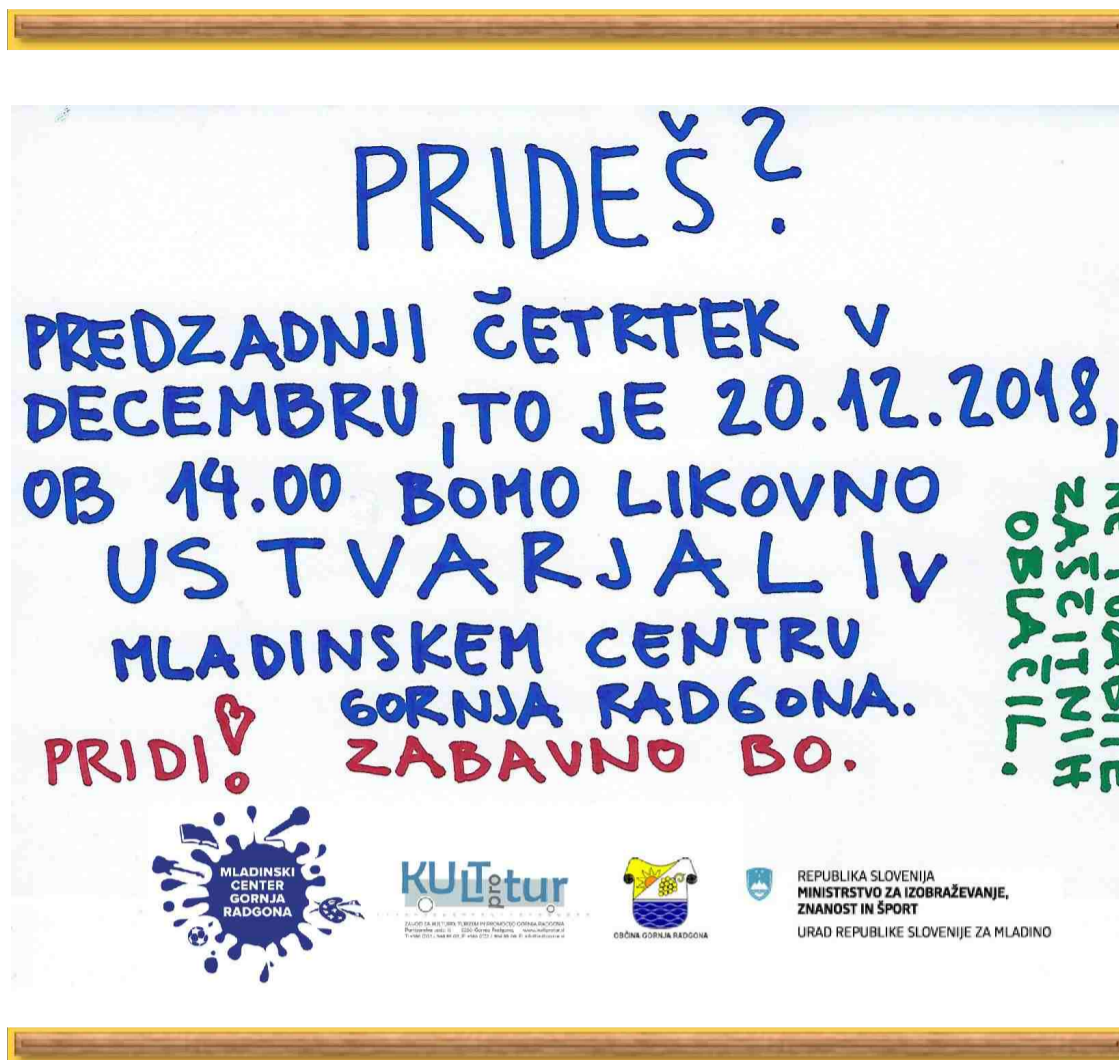 PRIDEŠ?
PREDZADNJI ČETRTEK V
DECEMBRU, TO JE 20.12.2018,
OB 14.00 BOMO LIKOVNO
USTVARJALI V
MLADINSKEM CENTRU
GORNJA RADGONA.
PRIDI! ZABAVNO BO.
ZAŠČITNIH
OBLAČIL.
MLADINSKI
CENTER
GORNJA
RADGONA
KULTtur
pro
ZAVOD ZA KULTURO, TURIZEM IN PROMOCIJO GORNJA RADGONA
OBČINA GORNJA RADGONA
REPUBLIKA SLOVENIJA
MINISTRSTVO ZA IZOBRAŽEVANJE,
ZNANOST IN ŠPORT
URAD REPUBLIKE SLOVENIJE ZA MLADINO